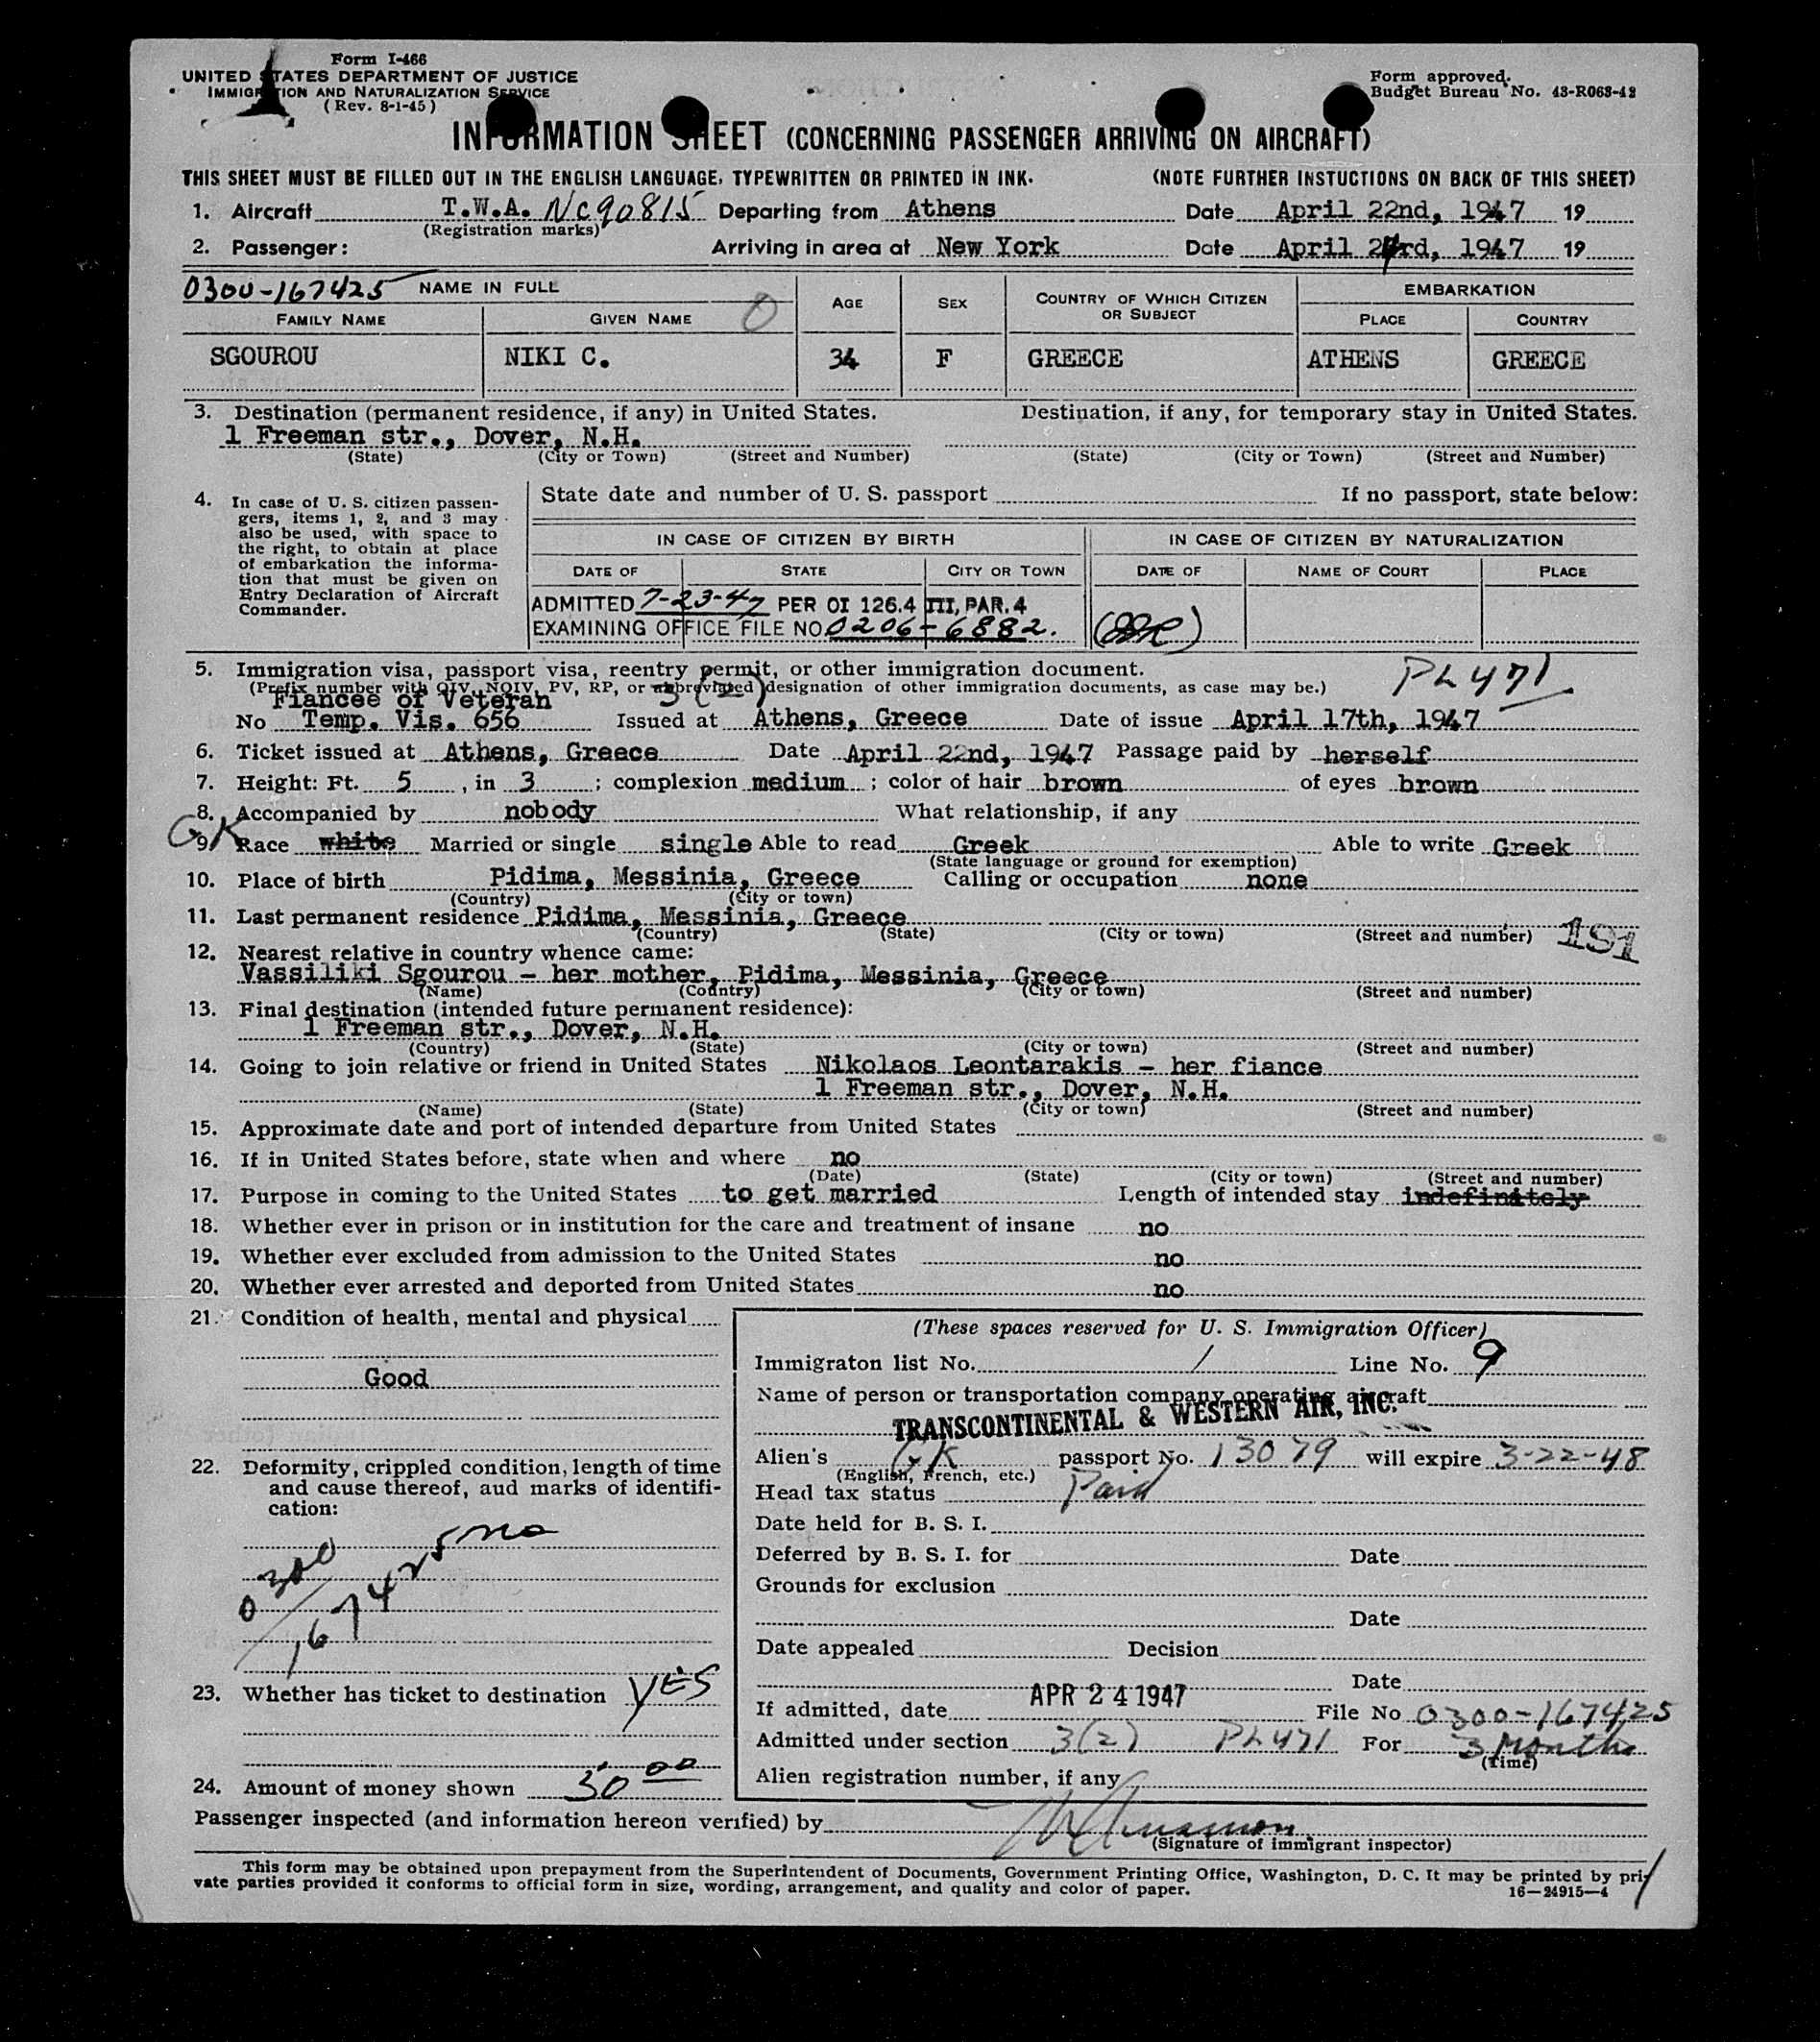 Form I-466
UNITED STATES DEPARTMENT OF JUSTICE
IMMIGRATION AND NATURALIZATION SERVICE
(Rev. 8-1-45)
Form approved.
Budget Bureau No. 43-R063-42
INFORMATION SHEET (CONCERNING PASSENGER ARRIVING ON AIRCRAFT)
THIS SHEET MUST BE FILLED OUT IN THE ENGLISH LANGUAGE, TYPEWRITTEN OR PRINTED IN INK. (NOTE FURTHER INSTUCTIONS ON BACK OF THIS SHEET)
1. Aircraft T.W.A. NC90815 Departing from Athens Date April 22nd, 1947 19
(Registration marks)
2. Passenger: Arriving in area at New York Date April 24rd, 1947 19
0300-167425 NAME IN FULL AGE SEX COUNTRY OF WHICH CITIZEN OR SUBJECT EMBARKATION
FAMILY NAME GIVEN NAME 0 PLACE COUNTRY
SGOUROU NIKI C. 34 F GREECE ATHENS GREECE
3. Destination (permanent residence, if any) in United States. Destination, if any, for temporary stay in United States.
1 Freeman str., Dover, N.H.
(State) (City or Town) (Street and Number) (State) (City or Town) (Street and Number)
4. In case of U. S. citizen passen-
gers, items 1, 2, and 3 may
also be used, with space to
the right, to obtain at place
of embarkation the informa-
tion that must be given on
Entry Declaration of Aircraft
Commander.
State date and number of U. S. passport If no passport, state below:
IN CASE OF CITIZEN BY BIRTH IN CASE OF CITIZEN BY NATURALIZATION
DATE OF STATE CITY OR TOWN DATE OF NAME OF COURT PLACE
ADMITTED 7-23-47 PER OI 126.4 III, PAR. 4
EXAMINING OFFICE FILE NO. 0206-6882.
5. Immigration visa, passport visa, reentry permit, or other immigration document. PL 471
(Prefix number with QIV, NQIV, PV, RP, or abbreviated designation of other immigration documents, as case may be.)
Fiancee of Veteran 3(2)
No Temp. Vis. 656 Issued at Athens, Greece Date of issue April 17th, 1947
6. Ticket issued at Athens, Greece Date April 22nd, 1947 Passage paid by herself
7. Height: Ft. 5, in 3; complexion medium; color of hair brown of eyes brown
8. Accompanied by nobody What relationship, if any
GK
9. Race white Married or single single Able to read Greek Able to write Greek
(State language or ground for exemption)
10. Place of birth Pidima, Messinia, Greece Calling or occupation none
(Country) (City or town)
11. Last permanent residence Pidima, Messinia, Greece
(Country) (State) (City or town) (Street and number) 191
12. Nearest relative in country whence came:
Vassiliki Sgourou - her mother, Pidima, Messinia, Greece
(Name) (Country) (City or town) (Street and number)
13. Final destination (intended future permanent residence):
1 Freeman str., Dover, N.H.
(Country) (State) (City or town) (Street and number)
14. Going to join relative or friend in United States Nikolaos Leontarakis - her fiance
1 Freeman str., Dover, N.H.
(Name) (State) (City or town) (Street and number)
15. Approximate date and port of intended departure from United States
16. If in United States before, state when and where no
(Date) (State) (City or town) (Street and number)
17. Purpose in coming to the United States to get married Length of intended stay indefinitely
18. Whether ever in prison or in institution for the care and treatment of insane no
19. Whether ever excluded from admission to the United States no
20. Whether ever arrested and deported from United States no
21. Condition of health, mental and physical
Good
22. Deformity, crippled condition, length of time
and cause thereof, aud marks of identifi-
cation:
no
0300
167425
23. Whether has ticket to destination YES
24. Amount of money shown 50 00
(These spaces reserved for U. S. Immigration Officer)
Immigraton list No. 1 Line No. 9
Name of person or transportation company operating aircraft
TRANSCONTINENTAL & WESTERN AIR, INC.
Alien's GK passport No. 13079 will expire 3-22-48
(English, French, etc.)
Head tax status Paid
Date held for B. S. I.
Deferred by B. S. I. for Date
Grounds for exclusion
Date
Date appealed Decision
Date
If admitted, date APR 24 1947 File No 0300-167425
Admitted under section 3(2) PL 471 For 3 Months
(Time)
Alien registration number, if any
Passenger inspected (and information hereon verified) by
(Signature of immigrant inspector)
This form may be obtained upon prepayment from the Superintendent of Documents, Government Printing Office, Washington, D. C. It may be printed by pri-
vate parties provided it conforms to official form in size, wording, arrangement, and quality and color of paper. 16—24915—4